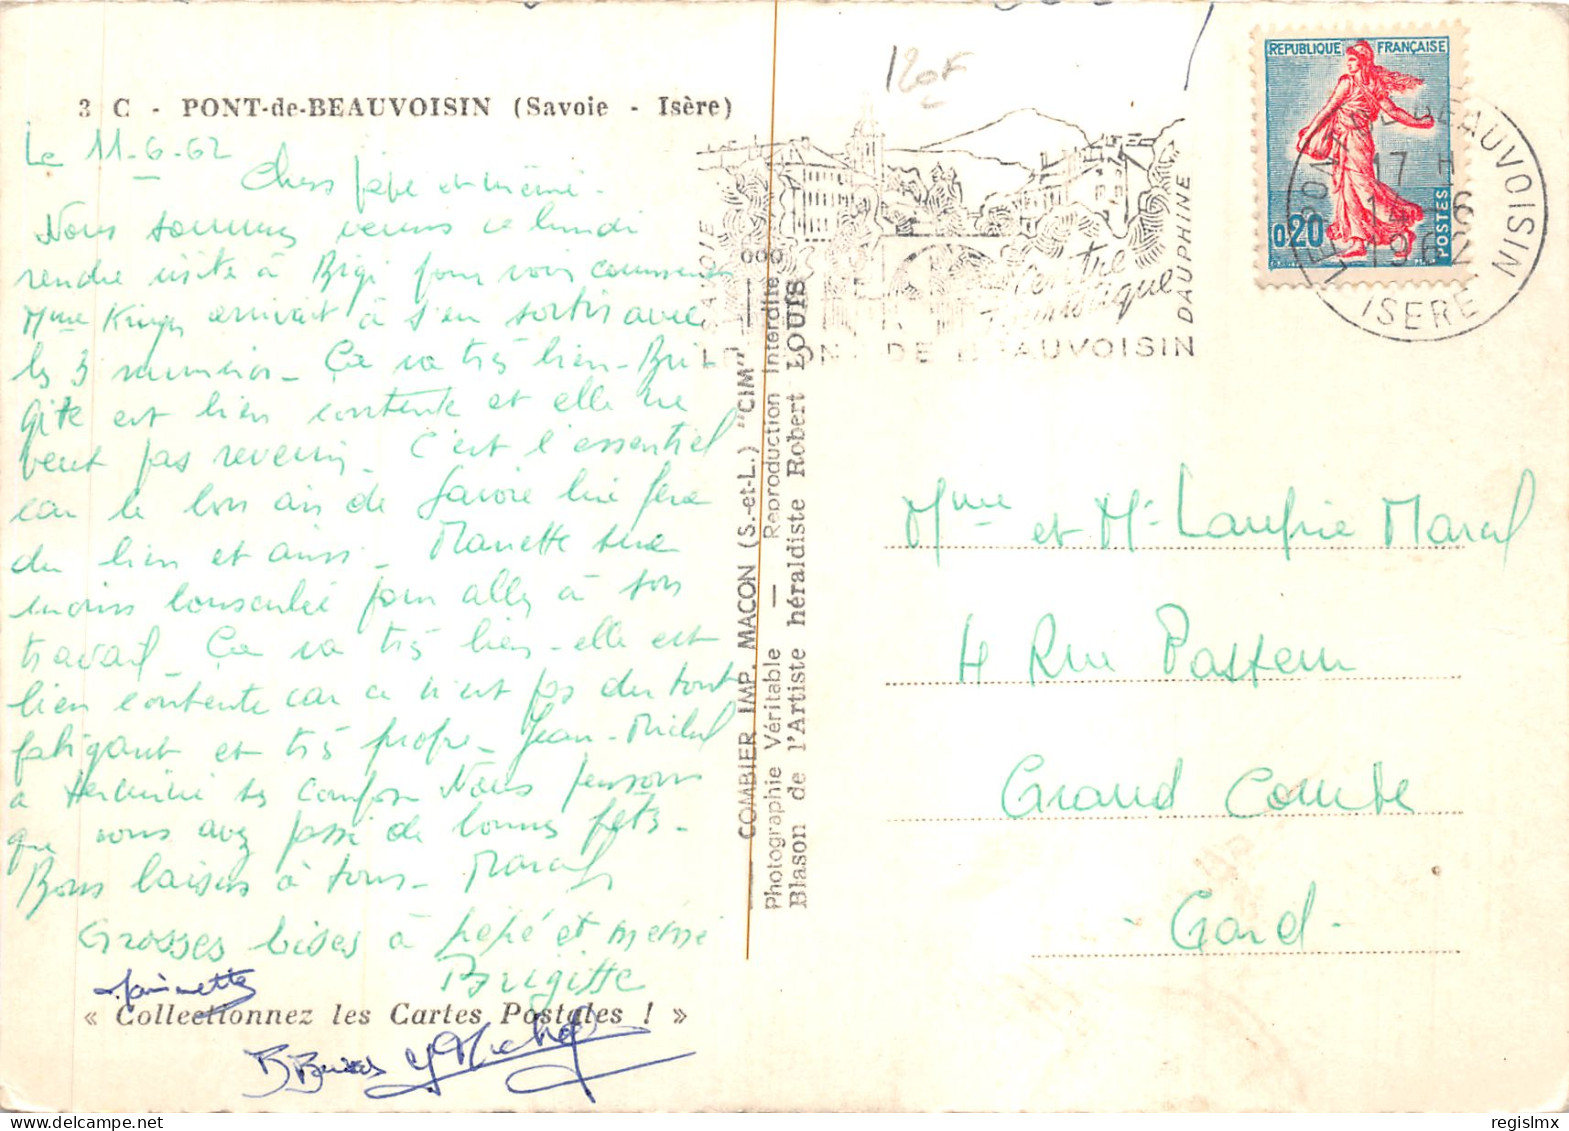 3 C - PONT-de-BEAUVOISIN (Savoie - Isère)
Le 11-6-62
Chers pépé et mémé -
Nous sommes venus ce lundi
rendre visite à Brigi pour voir comment
Mme arrivait à s'en sortir avec
les 3 - Ça va très bien - Bri
gite est bien contente et elle ne
veut pas revenir - C'est l'essentiel
car le bon air de Savoie lui fera
du bien et ainsi - Manette sera
moins bousculée pour aller à son
travail - Ça va très bien - elle est
bien contente car ce n'est pas du tout
fatigant et très propre - Jean-Michel
a terminé ses compos Nous pensons
que vous avez passé de bonnes fêtes -
Bons baisers à tous - Marcel
Grosses bises à pépé et mémé
Brigitte
Marinette
« Collectionnez les Cartes Postales ! »
B Baisers J Michel
COMBIER IMP. MACON (S.-et-L.) "CIM"
Photographie Véritable — Reproduction Interdite
Blason de l'Artiste héraldiste Robert LOUIS
120F
SAVOIE
Centre
Touristique
DAUPHINE
LE PONT DE BEAUVOISIN
REPUBLIQUE FRANÇAISE
0,20
POSTES
LE PONT DE BEAUVOISIN
17 H
14 - 6
1962
ISERE
Mme et Mr Marcel
4 Rue Pasteur
Grand Combe
- Gard -
regislmx